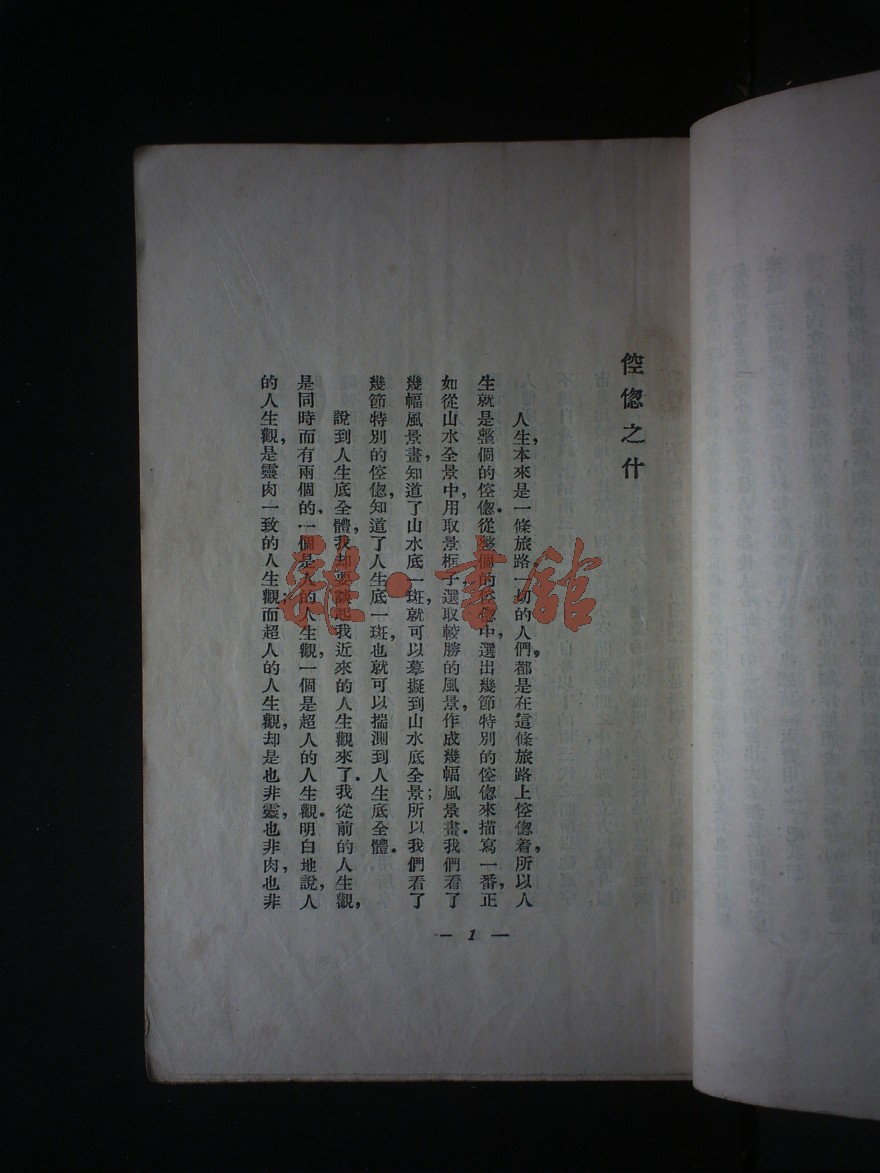 倥偬之什
人生，本來是一條旅路，一切的人們，都是在這條旅路上倥偬着，所以人
生就是整個的倥偬。從整個的倥偬中，選出幾節特別的倥偬來描寫一番，正
如從山水全景中，用取景框子選取較勝的風景，作成幾幅風景畫。我們看了
幾幅風景畫，知道了山水底一斑，就可以摹擬到山水底全景；所以我們看了
幾節特別的倥偬，知道了人生底一斑，也就可以揣測到人生底全體。
說到人生底全體，我却要談起我近來的人生觀來了。我從前的人生觀，
是同時而有兩個的。一個是人的人生觀，一個是超人的人生觀。明白地說，人
的人生觀，是靈肉一致的人生觀；而超人的人生觀，却是也非靈，也非肉，也非
— 1 —
雜·書館